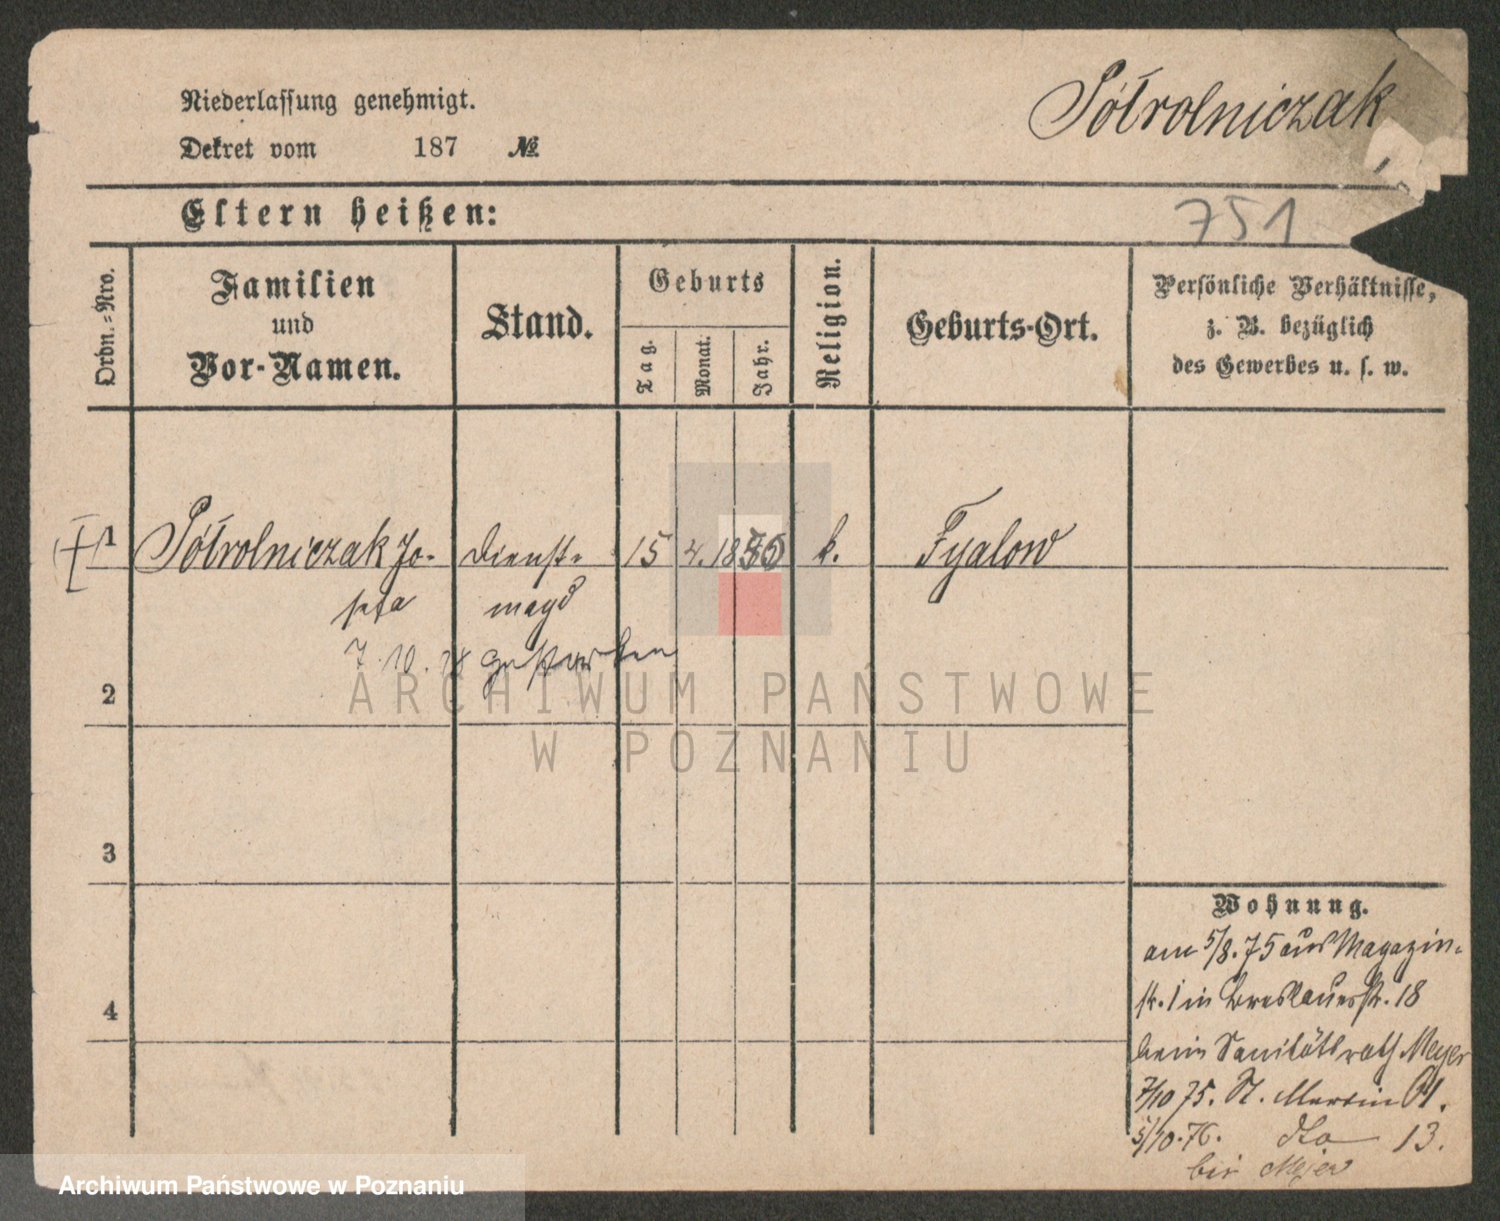 Niederlassung genehmigt.
Dekret vom 187 №
Półrolniczak
751
Eltern heißen:
Ordn.-Nro.
Familien
und
Vor-Namen.
Stand.
Geburts
Tag.
Monat.
Jahr.
Religion.
Geburts-Ort.
Persönliche Verhältnisse,
z. B. bezüglich
des Gewerbes u. s. w.
1 Półrolniczak Jo- Dienst- 15 4. 18 k. Fyalow
sefa magd
7.10.78 gestorben
2
3
4
Wohnung.
am 5/8. 75 aus Magazin-
str. 1 in Breslauerstr. 18
beim Sanitätsrath Meyer
7/10 75. St. Martin 61.
5/10. 76. dto 13.
bei Meier
ARCHIWUM PAŃSTWOWE
W POZNANIU
Archiwum Państwowe w Poznaniu